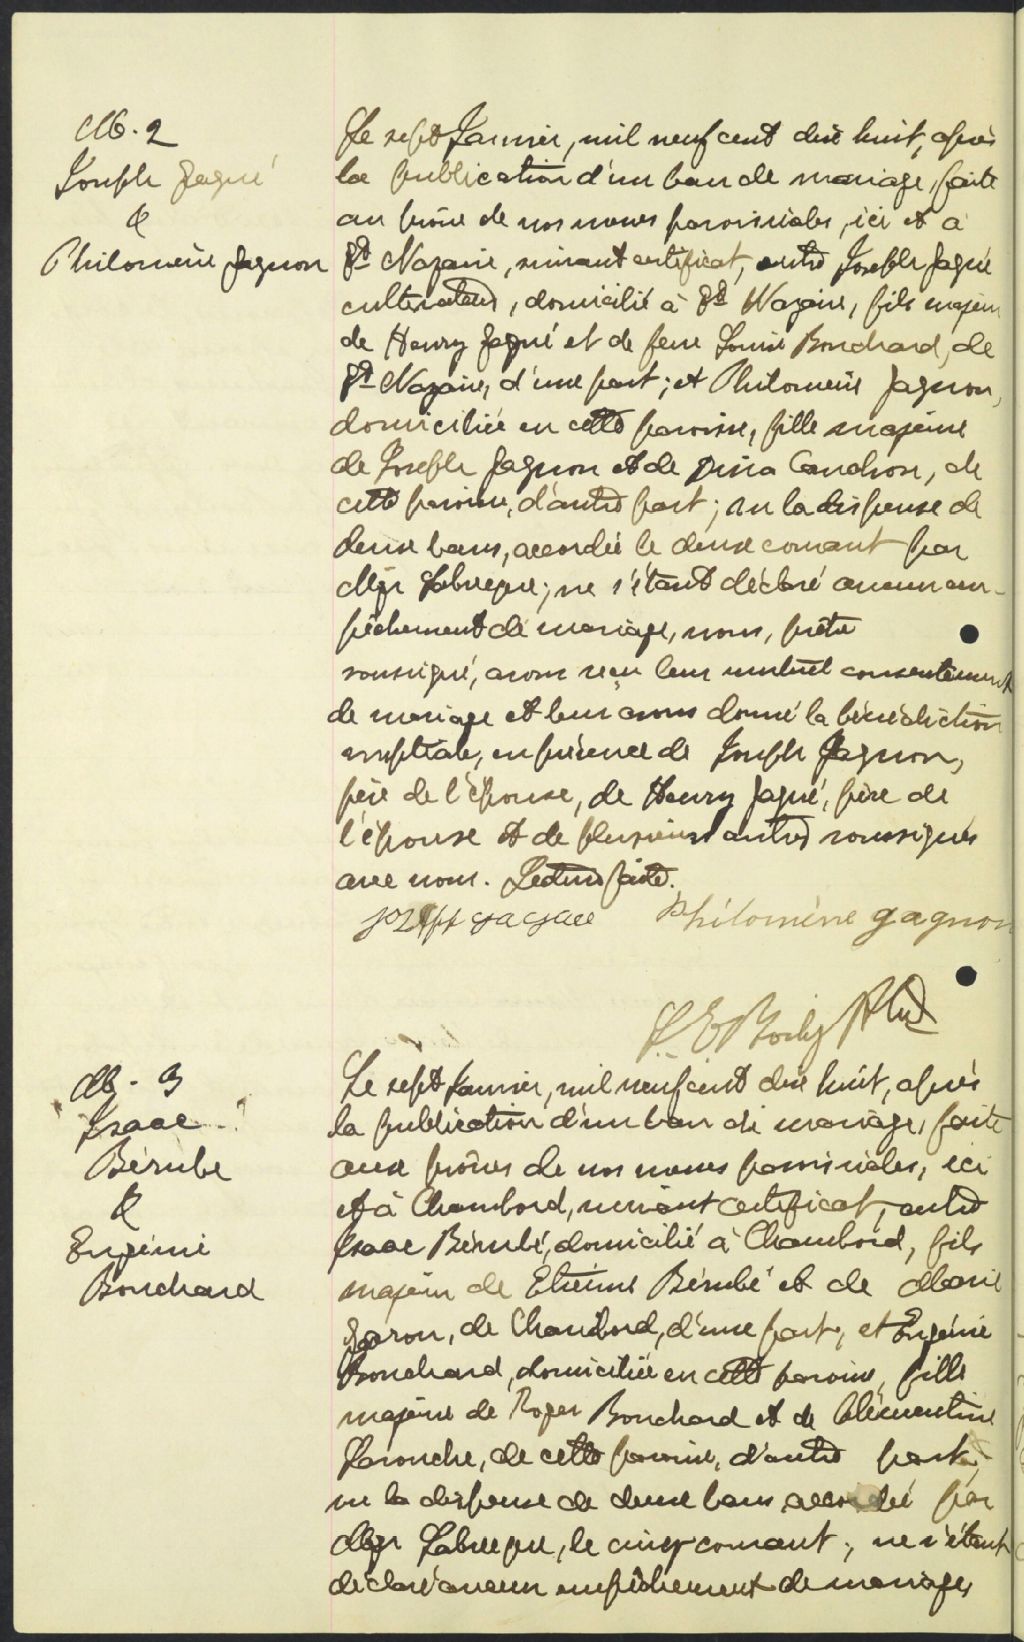 M. 2
Joseph Gagné
&
Philomène Gagnon
Le sept Janvier, mil neuf cent dix huit, après
la publication d'un ban de mariage, faite
au prône de nos messes paroissiales, ici et à
St Nazaire, suivant certificat, entre Joseph Gagné
cultivateur, domicilié à St Nazaire, fils majeur
de Henry Gagné et de feue Louise Bouchard, de
St Nazaire, d'une part; et Philomène Gagnon,
domiciliée en cette paroisse, fille majeure
de Joseph Gagnon et de Dina Gaudron, de
cette paroisse, d'autre part; vu la dispense de
deux bans, accordée le deux courant par
Mgr Labrecque; ne s'étant déclaré aucun em-
pêchement de mariage, nous, prêtre
soussigné, avons reçu leur mutuel consentement
de mariage et leur avons donné la bénédiction
nuptiale, en présence de Joseph Gagnon,
père de l'épouse, de Henry Gagné, père de
l'épouse et de plusieurs autres soussignés
avec nous. Lecture faite.
Philomène gagnon
Boily Ptre
M. 3
Isaac
Bérubé
&
Eugénie
Bouchard
Le sept Janvier, mil neuf cent dix huit, après
la publication d'un ban de mariage, faite
aux prônes de nos messes paroissiales, ici
et à Chambord, suivant certificat, entre
Isaac Bérubé, domicilié à Chambord, fils
majeur de Etienne Bérubé et de Marie
Garon, de Chambord, d'une part, et Eugénie
Bouchard, domiciliée en cette paroisse, fille
majeure de Roger Bouchard et de Clémentine
Larouche, de cette paroisse, d'autre part;
vu la dispense de deux bans accordée par
Mgr Labrecque, le cinq courant; ne s'étant
déclaré aucun empêchement de mariage,